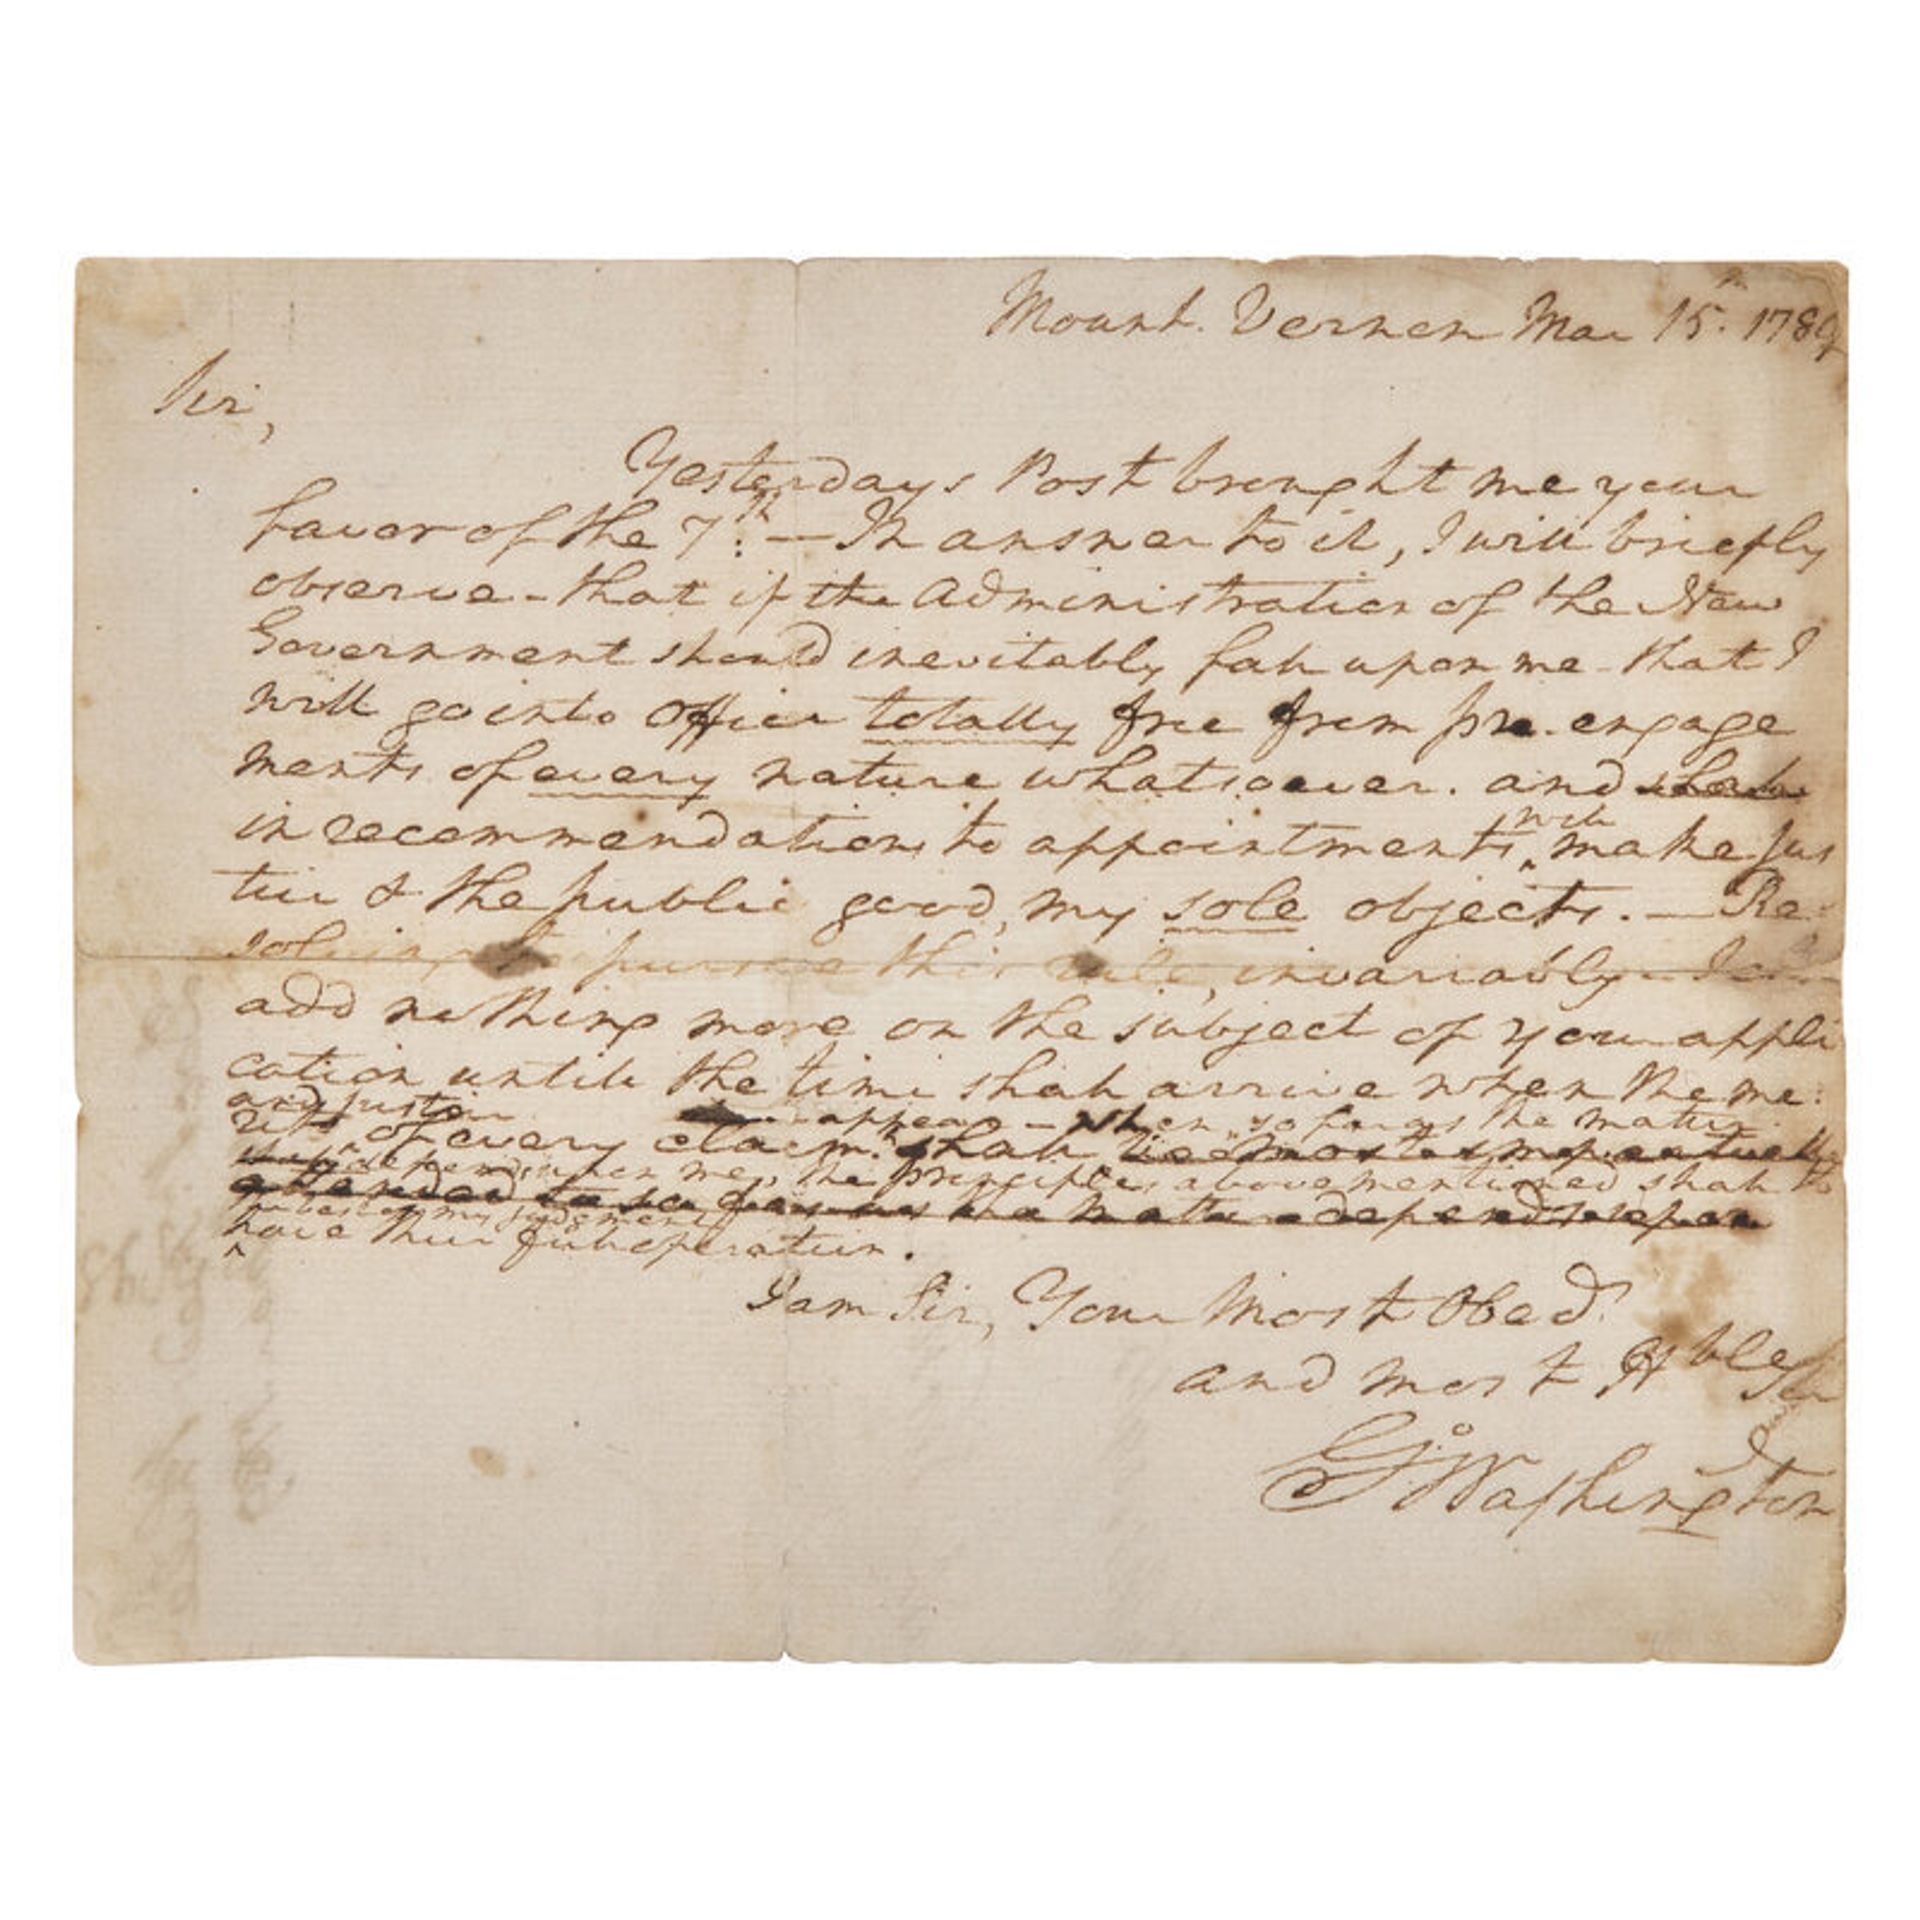 Mount Vernon Mar 15th. 1789
Sir,
Yesterdays Post brought me your
favor of the 7th: — In answer to it, I will briefly
observe - that if the Administration of the New
Government should inevitably fall upon me - that I
will go into Office totally free from pre-engage
ments of every nature whatsoever. and shall
in recommendations to appointments will make jus
tice & the public good, my sole objects. — Re-
solving to pursue this rule, invariably - I can
add nothing more on the subject of your appli
cation untill the time shall arrive when the me:
and justice appear - when so far as the matter
rits of every claim shall be most impartially
depends upon me, the principles abovementioned shall
attended to so far as the matter depends upon
to the best of my judgement
have their full operation.
I am Sir, Your Most Obedt.
and most Hble Ser
Go: Washington